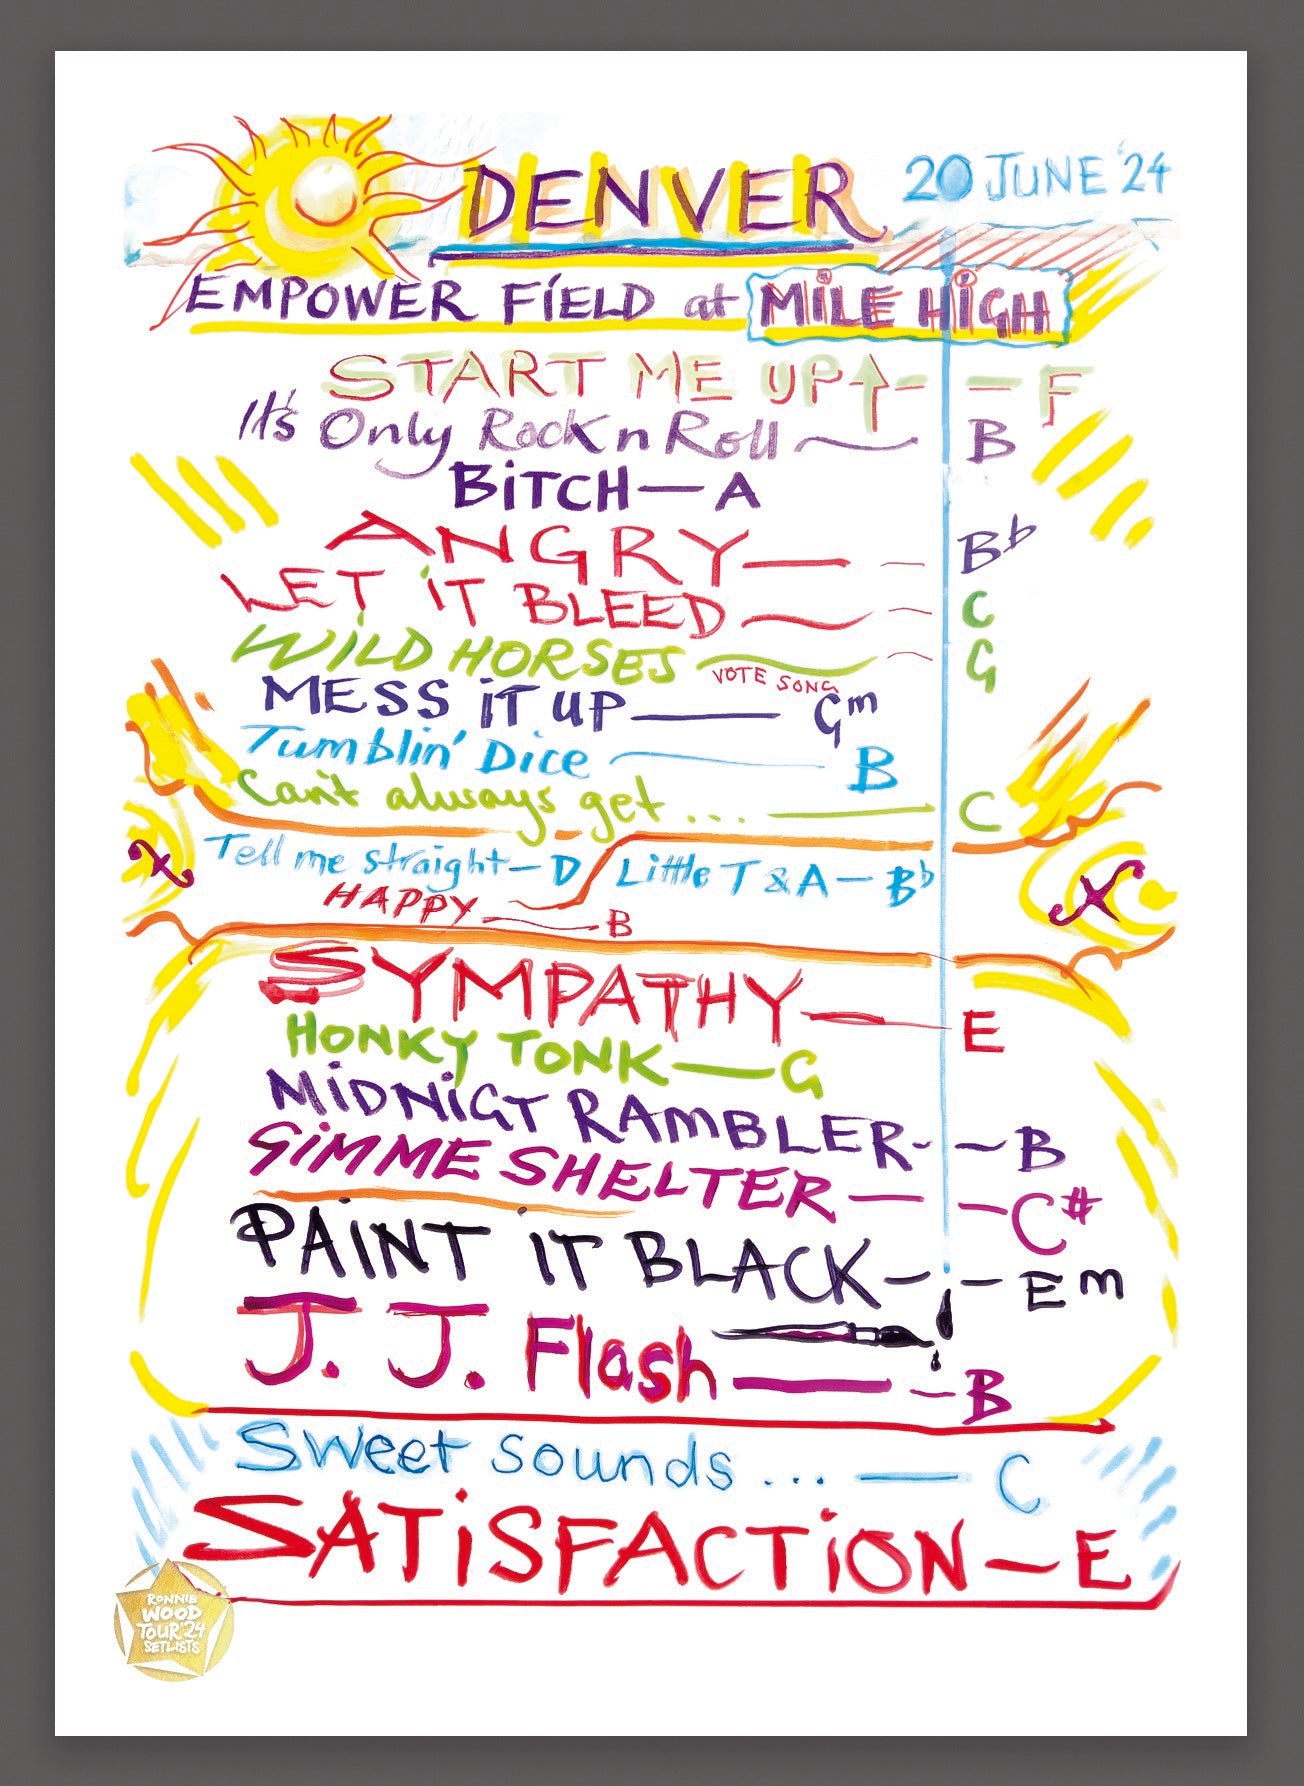 DENVER 20 JUNE '24
EMPOWER FiELD at MiLE HiGH
START ME UP↑ - — F
It's Only Rock n Roll — B
BiTCH — A
ANGRY — — B♭
LET iT BLEED — — C
WiLD HORSES — — G
VOTE SONG
MESS iT UP — Gm
Tumblin' Dice — B
Can't always get ... — C
Tell me straight — D / Little T & A — B♭
HAPPY — B
SYMPATHY — E
HONKY TONK — G
MiDNiGT RAMBLER - — B
GiMME SHELTER — — C#
PAiNT iT BLACK - — Em
J. J. Flash — — B
Sweet Sounds ... — C
SATiSFACTiON — E
RONNIE
WOOD
TOUR '24
SETLISTS